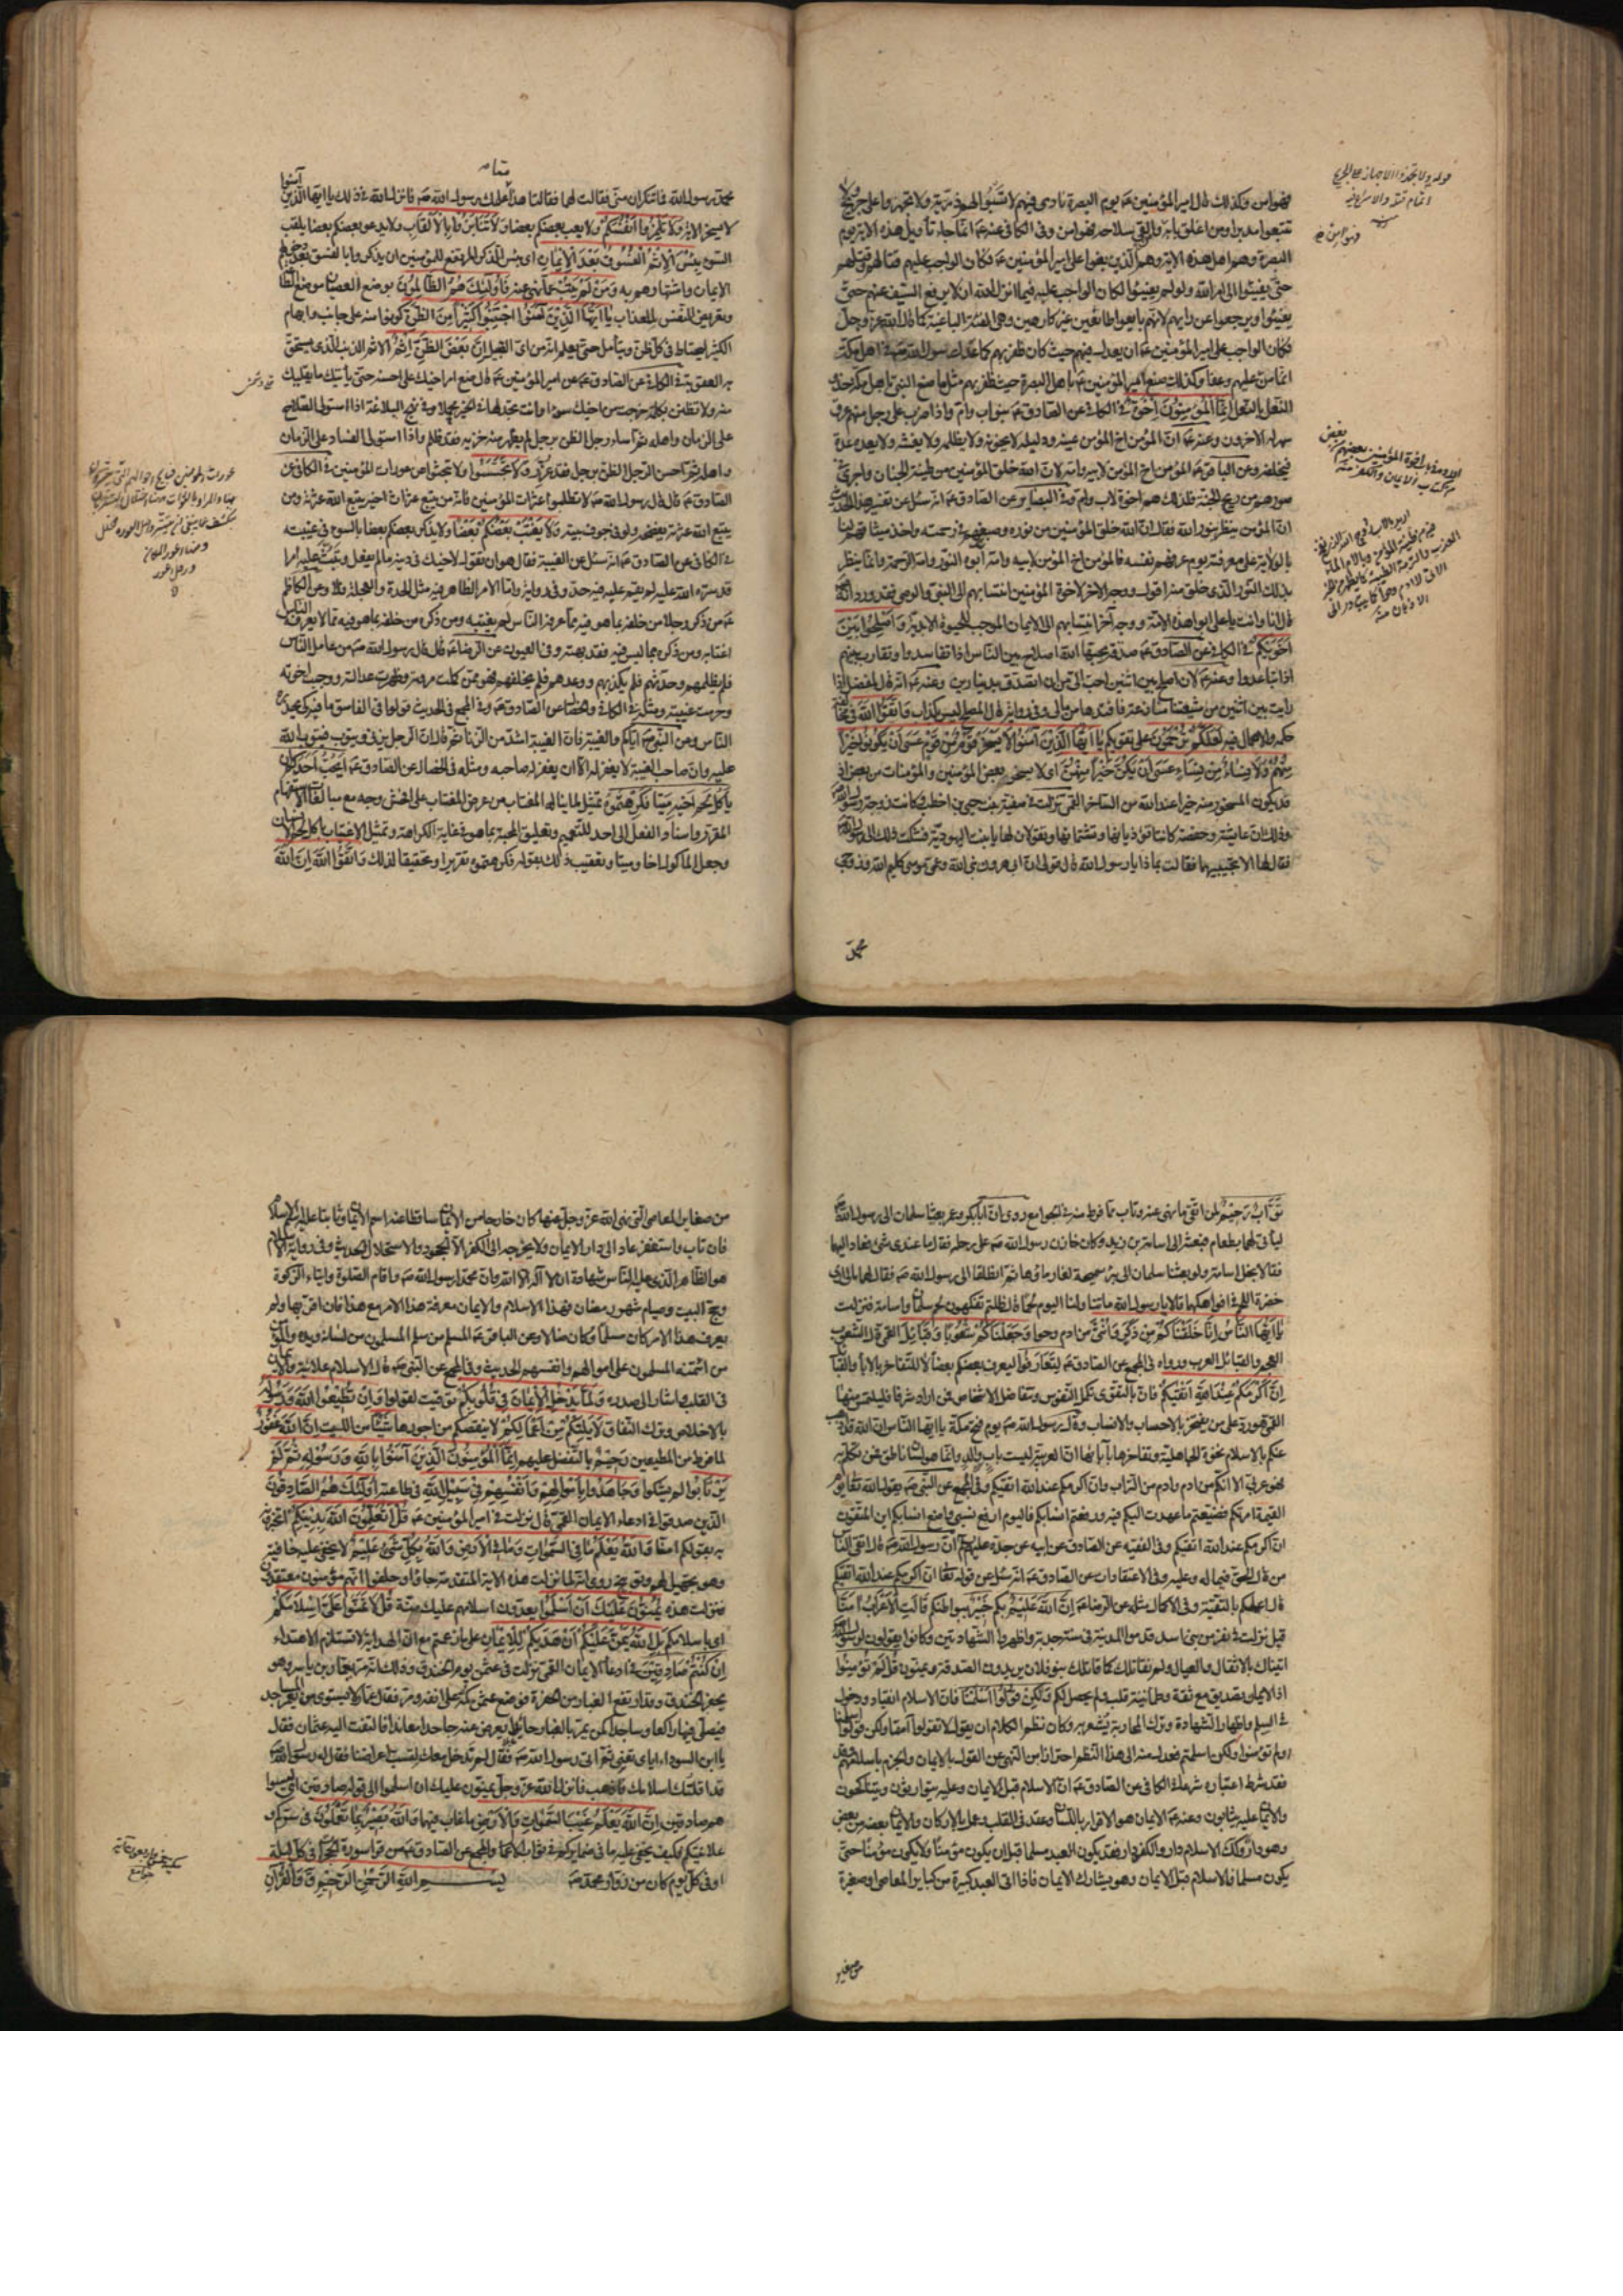 فهو امن وكذلك قال امير المؤمنين عم يوم البصرة نادى فيهم لا تسبوا لهم ذرية ولا تجهزوا على جريح ولا
تتبعوا مدبرا ومن اغلق بابه والقى سلاحه فهو امن وفي الكافي عنه عم انما جاء تأويل هذه الاية يوم
البصرة وهم اهل هذه الاية وهم الذين بغوا على امير المؤمنين عم فكان الواجب عليهم قتالهم وقتلهم
حتى يفيئوا الى امر الله ولو لم يفيئوا لكان الواجب عليه فيما انزل الله ان لا يرفع السيف عنهم حتى
يفيئوا ويرجعوا عن رايهم لانهم بايعوا طائعين غير كارهين وهي الفئة الباغية كما قال الله عز وجل
فكان الواجب على امير المؤمنين عم ان يعدل فيهم حيث كان ظفر بهم كما عدل رسول الله صم في اهل مكة
انما من عليهم وعفا وكذلك صنع امير المؤمنين عم باهل البصرة حيث ظفر بهم مثل ما صنع النبي باهل مكة حذو
النعل بالنعل إنما المؤمنون إخوة في الكافي عن الصادق عم بنو اب وام واذا ضرب على رجل منهم عرق
سهر له الاخرون وعنه عم ان المؤمن اخ المؤمن عينه ودليله لا يخونه ولا يظلمه ولا يغشه ولا يعده عدة
فيخلفه وعن الباقر عم المؤمن اخ المؤمن لابيه وامه لان الله خلق المؤمنين من طينة الجنان واجرى في
صورهم من ريح الجنة فلذلك هم اخوة لاب وام وفي البصاير عن الصادق عم انه سئل عن تفسير هذا الحديث
ان المؤمن ينظر بنور الله فقال ان الله خلق المؤمنين من نوره وصبغهم في رحمته واخذ ميثاقهم لنا
بالولاية على معرفته يوم عرفهم نفسه فالمؤمن اخ المؤمن لابيه وامه ابوه النور وامه الرحمة وانما ينظر
بذلك النور الذي خلق منه اقول ووجه اخر لاخوة المؤمنين انتسابهم الى النبي والوصي فقد ورد انه
قال انا وانت يا علي ابوا هذه الامة ووجه اخر انتسابهم الى الايمان الموجب للحيوة الابدية وأصلحوا بين
أخويكم في الكافي عن الصادق عم صدقة يحبها الله اصلاح بين الناس اذا تفاسدوا وتقارب بينهم
اذا تباعدوا وعنه عم لان اصلح بين اثنين احب الي من ان اتصدق بدينارين وعنه عم انه قال لمفضل اذا
رايت بين اثنين من شيعتنا منازعة فافتدها من مالي وفي رواية قال المصلح ليس بكذاب واتقوا الله في مخالفة
حكمه والاهمال فيه لعلكم ترحمون على تقويكم يا أيها الذين آمنوا لا يسخر قوم من قوم عسى أن يكونوا خيرا
منهم ولا نساء من نساء عسى أن يكن خيرا منهن اي لا يسخر بعض المؤمنين والمؤمنات من بعض اذ
قد يكون المسخور منه خيرا عند الله من الساخر القمي نزلت في صفية بنت حيي بن اخطب وكانت زوجة رسول الله
وذلك ان عايشة وحفصة كانتا تؤذيانها وتشتمانها وتقولان لها يا بنت اليهودية فشكت ذلك الى رسول الله
فقال لها الا تجيبينهما فقالت بماذا يا رسول الله قال قولي ان ابي هرون نبي الله وعمي موسى كليم الله وزوجي
محمد
محمد رسول الله فما تنكران مني فقالت لهما فقالتا هذا علمك رسول الله صم فانزل الله في ذلك يا ايها الذين آمنوا
لا يسخر الاية ولا تلمزوا أنفسكم ولا يعب بعضكم بعضا ولا تنابزوا بالألقاب ولا يدعو بعضكم بعضا بلقب
السوء بئس الإسم الفسوق بعد الإيمان اي بئس الذكر المرتفع للمؤمنين ان يذكروا بالفسق بعد دخولهم
الايمان واشتهارهم به ومن لم يتب عما نهي عنه فأولئك هم الظالمون بوضع العصيان موضع الطاعة
وتعريض النفس للعذاب يا أيها الذين آمنوا اجتنبوا كثيرا من الظن كونوا منه على جانب وابهام
الكثير ليحتاط في كل ظن ويتأمل حتى يعلم انه من اي القبيل إن بعض الظن إثم الاثم الذنب الذي يستحق
به العقوبة في الكافي عن الصادق عم عن امير المؤمنين عم قال ضع امر اخيك على احسنه حتى يأتيك ما يقلبك
منه ولا تظنن بكلمة خرجت من اخيك سوءا وانت تجد لها في الخير محملا وفي نهج البلاغة اذا استولى الصلاح
على الزمان واهله ثم اساء رجل الظن برجل لم يظهر منه خزية فقد ظلم واذا استولى الفساد على الزمان
واهله ثم احسن الرجل الظن برجل فقد غرر ولا تجسسوا ولا تبحثوا عن عورات المؤمنين في الكافي عن
الصادق عم قال قال رسول الله صم لا تطلبوا عثرات المؤمنين فانه من يتبع عثرات اخيه يتبع الله عثرته ومن
يتبع الله عثرته يفضحه ولو في جوف بيته ولا يغتب بعضكم بعضا ولا يذكر بعضكم بعضا بالسوء في غيبته
في الكافي عن الصادق عم انه سئل عن الغيبة فقال هو ان تقول لاخيك في دينه ما لم يفعل وتبث عليه امرا
قد ستره الله عليه لم يقم عليه فيه حد وفي رواية واما الامر الظاهر فيه مثل الحدة والعجلة فلا وعن الكاظم
عم من ذكر رجلا من خلفه بما هو فيه مما عرفه الناس لم يغتبه ومن ذكره من خلفه بما هو فيه مما لا يعرفه الناس
اغتابه ومن ذكره بما ليس فيه فقد بهته وفي العيون عن الرضا عم قال قال رسول الله صم من عامل الناس
فلم يظلمهم وحدثهم فلم يكذبهم ووعدهم فلم يخلفهم فهو ممن كملت مروته وظهرت عدالته ووجبت اخوته
وحرمت غيبته ومثله في الكافي والخصال عن الصادق عم وفي المجمع في الحديث قولوا في الفاسق ما فيه كي يحذره
الناس وعن النبي صم اياكم والغيبة فان الغيبة اشد من الزنا ثم قال ان الرجل يزني ويتوب فيتوب الله
عليه وان صاحب الغيبة لا يغفر له الا ان يغفر له صاحبه ومثله في الخصال عن الصادق عم أيحب أحدكم أن
يأكل لحم أخيه ميتا فكرهتموه تمثيل لما يناله المغتاب من عرض المغتاب على افحش وجه مع مبالغات الاستفهام
المقرر واسناد الفعل الى احد للتعميم وتعليق المحبة بما هو في غاية الكراهة وتمثيل الاغتياب باكل لحم الانسان
وجعل الماكول اخا وميتا وتعقيب ذلك بقوله فكرهتموه تقريرا وتحقيقا لذلك واتقوا الله إن الله
تواب رحيم لمن اتقى ما نهي عنه وتاب مما فرط منه في الجوامع روي ان ابا بكر وعمر بعثا سلمان الى رسول الله
ليأتي لهما بطعام فبعثه الى اسامة بن زيد وكان خازن رسول الله صم على رحله فقال ما عندي شئ فعاد اليهما
فقالا بخل اسامة ولو بعثنا سلمان الى بئر سميحة لغار ماؤها ثم انطلقا الى رسول الله صم فقال لهما ما لي ارى
خضرة اللحم في افواهكما قالا يا رسول الله ما تناولنا اليوم لحما قال ظلتم تفكهون لحم سلمان واسامة فنزلت
يا أيها الناس إنا خلقناكم من ذكر وأنثى من ادم وحوا وجعلناكم شعوبا وقبائل القمي قال الشعوب
العجم والقبائل العرب ورواه في المجمع عن الصادق عم لتعارفوا ليعرف بعضكم بعضا لا للتفاخر بالاباء والقبائل
إن أكرمكم عند الله أتقيكم فان بالتقوى تكمل النفوس وتتفاضل الاشخاص فمن اراد شرفا فليلتمس منها
القمي هو رد على من يفتخر بالاحساب والانساب وقال رسول الله صم يوم فتح مكة يا ايها الناس ان الله قد اذهب
عنكم بالاسلام نخوة الجاهلية وتفاخرها بآبائها ان العربية ليست باب والد وانما هو لسان ناطق فمن تكلم به
فهو عربي الا انكم من ادم وادم من التراب وان اكرمكم عند الله اتقيكم وفي المجمع عن النبي صم يقول الله تعالى يوم
القيمة امرتكم فضيعتم ما عهدت اليكم فيه ورفعتم انسابكم فاليوم ارفع نسبي واضع انسابكم اين المتقون
ان اكرمكم عند الله اتقيكم وفي الفقيه عن الصادق عن ابيه عن جده عليهم ان رسول الله صم قال اتقى الناس
من قال الحق فيما له وعليه وفي الاعتقادات عن الصادق عم انه سئل عن قوله تعالى ان اكرمكم عند الله اتقيكم
قال اعملكم بالتقية وفي الاكمال مثله عن الرضا عم إن الله عليم بكم خبير ببواطنكم قالت الأعراب آمنا
قيل نزلت في نفر من بني اسد قدموا المدينة في سنة جدبة واظهروا الشهادتين وكانوا يقولون لرسول الله
اتيناك بالاثقال والعيال ولم نقاتلك كما قاتلك بنو فلان يريدون الصدقة ويمنون قل لم تؤمنوا
اذ الايمان تصديق مع ثقة وطمانينة قلب ولم يحصل لكم ولكن قولوا أسلمنا فان الاسلام انقياد ودخول
في السلم واظهار الشهادة وترك المحاربة يشعر به وكان نظم الكلام ان يقول لا تقولوا آمنا ولكن قولوا اسلمنا
او لم تؤمنوا ولكن اسلمتم فعدل منه الى هذا النظم احترازا من النهي عن القول بالايمان والجزم باسلامهم
فقد شرط اعتباره شرعا في الكافي عن الصادق عم ان الاسلام قبل الايمان وعليه يتوارثون ويتناكحون
والايمان عليه يثابون وعنه عم الايمان هو الاقرار باللسان وعقد في القلب وعمل بالاركان والايمان بعضه من بعض
وهو دار وكذلك الاسلام دار والكفر دار فقد يكون العبد مسلما قبل ان يكون مؤمنا ولا يكون مؤمنا حتى
يكون مسلما فالاسلام قبل الايمان وهو يشارك الايمان فاذا اتى العبد كبيرة من كباير المعاصي او صغيرة
من صغاير
من صغاير المعاصي التي نهى الله عز وجل عنها كان خارجا من الايمان ساقطا عنه اسم الايمان وثابتا عليه اسم الاسلام
فان تاب واستغفر عاد الى دار الايمان ولا يخرجه الى الكفر الا الجحود والاستحلال الحديث وفي رواية الاسلام
هو الظاهر الذي عليه الناس شهادة ان لا اله الا الله وان محمدا رسول الله صم واقام الصلوة وايتاء الزكوة
وحج البيت وصيام شهر رمضان فهذا الاسلام والايمان معرفة هذا الامر مع هذا فان اقر بها ولم
يعرف هذا الامر كان مسلما وكان ضالا وعن الباقر عم المسلم من سلم المسلمون من لسانه ويده والمؤمن
من ائتمنه المسلمون على اموالهم وانفسهم الحديث وفي المجمع عن النبي صم قال الاسلام علانية والايمان
في القلب واشار الى صدره ولما يدخل الإيمان في قلوبكم توقيت لقولوا وإن تطيعوا الله ورسوله
بالاخلاص وترك النفاق لا يلتكم من أعمالكم لا ينقصكم من اجورها شيئا من الليت إن الله غفور
لما فرط من المطيعين رحيم بالتفضل عليهم إنما المؤمنون الذين آمنوا بالله ورسوله ثم لم
يرتابوا لم يشكوا وجاهدوا بأموالهم وأنفسهم في سبيل الله في طاعته أولئك هم الصادقون
الذين صدقوا في ادعاء الايمان القمي قال نزلت في امير المؤمنين عم قل أتعلمون الله بدينكم اتخبرونه
به بقولكم امنا والله يعلم ما في السموات وما في الأرض والله بكل شئ عليم لا يخفى عليه خافية
وهو تجهيل لهم وتوبيخ روي انه لما نزلت هذه الاية المتقدمة جاؤا وحلفوا انهم مؤمنون معتقدون
فنزلت هذه يمنون عليك أن أسلموا يعدون اسلامهم عليك منة قل لا تمنوا علي إسلامكم
اي باسلامكم بل الله يمن عليكم أن هديكم للإيمان على ما زعمتم مع ان الهداية لا تستلزم الاهتداء
إن كنتم صادقين في ادعاء الايمان القمي نزلت في عثمن يوم الخندق وذلك انه مر بعمار بن ياسر وهو
يحفر الخندق وقد ارتفع الغبار من الحفرة فوضع عثمن كمه على انفه ومر فقال عمار لا يستوي من يعمر المساجد
فيصلي فيها راكعا وساجدا كمن يمر بالغبار حائدا يعرض عنه جاحدا معاندا فالتفت اليه عثمان فقال
يا ابن السوداء اياي تعني ثم اتى رسول الله صم فقال لم ندخل معك لتسب اعراضنا فقال له رسول الله صم
قد اقلتك اسلامك فاذهب فانزل الله عز وجل يمنون عليك ان اسلموا الى قوله صادقين اي ليسوا
هم صادقين إن الله يعلم غيب السموات والأرض ما غاب فيهما والله بصير بما تعملون في سركم و
علانيتكم فكيف يخفى عليه ما في ضمايركم في ثواب الاعمال والمجمع عن الصادق عم من قرا سورة الحجرات في كل ليلة
او في كل يوم كان من زوار محمد صم بسم الله الرحمن الرحيم ق والقرآن